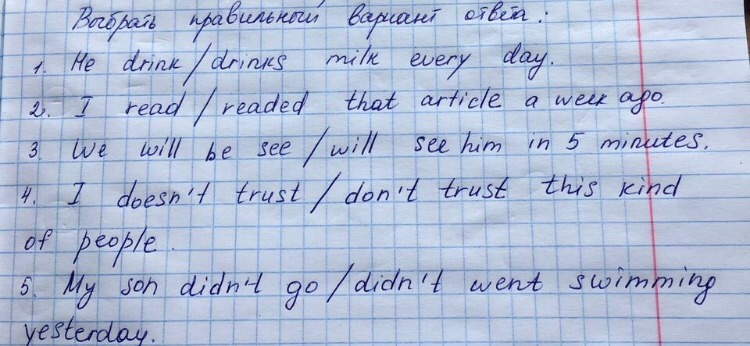 Выбрать правильный вариант ответа:
1. He drink/drinks milk every day.
2. I read/readed that article a week ago.
3. We will be see/will see him in 5 minutes.
4. I doesn't trust/don't trust this kind
of people.
5. My son didn't go/didn't went swimming
yesterday.